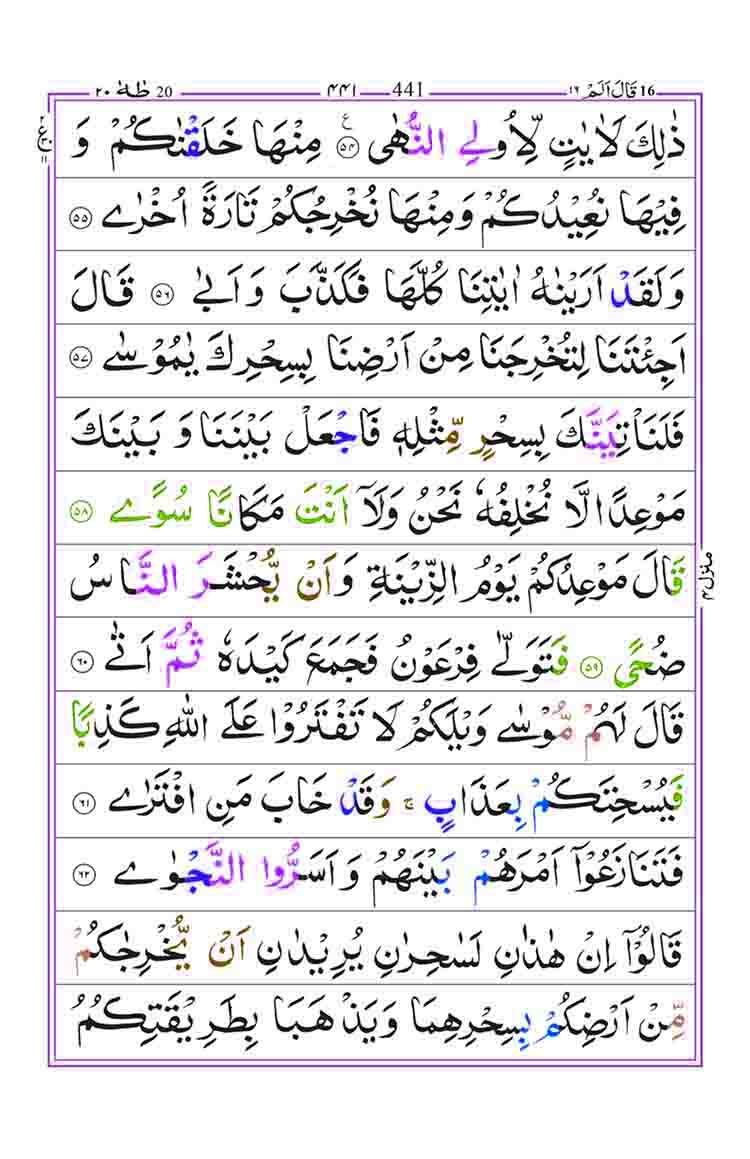 16 قَالَ اَلَمْ ١٦ 441 ٤٤١ 20 طٰهٰ ٢٠
ذٰلِكَ لَاٰيٰتٍ لِّاُولِى النُّهٰى ۝٥٤ ع مِنْهَا خَلَقْنٰكُمْ وَ
فِيْهَا نُعِيْدُكُمْ وَمِنْهَا نُخْرِجُكُمْ تَارَةً اُخْرٰى ۝٥٥
وَلَقَدْ اَرَيْنٰهُ اٰيٰتِنَا كُلَّهَا فَكَذَّبَ وَاَبٰى ۝٥٦ قَالَ
اَجِئْتَنَا لِتُخْرِجَنَا مِنْ اَرْضِنَا بِسِحْرِكَ يٰمُوْسٰى ۝٥٧
فَلَنَاْتِيَنَّكَ بِسِحْرٍ مِّثْلِهٖ فَاجْعَلْ بَيْنَنَا وَبَيْنَكَ
مَوْعِدًا لَّا نُخْلِفُهٗ نَحْنُ وَلَاۤ اَنْتَ مَكَانًا سُوًى ۝٥٨
قَالَ مَوْعِدُكُمْ يَوْمُ الزِّيْنَةِ وَاَنْ يُّحْشَرَ النَّاسُ
ضُحًى ۝٥٩ فَتَوَلّٰى فِرْعَوْنُ فَجَمَعَ كَيْدَهٗ ثُمَّ اَتٰى ۝٦٠
قَالَ لَهُمْ مُّوْسٰى وَيْلَكُمْ لَا تَفْتَرُوْا عَلَى اللّٰهِ كَذِبًا
فَيُسْحِتَكُمْ بِعَذَابٍ ۚ وَقَدْ خَابَ مَنِ افْتَرٰى ۝٦١
فَتَنَازَعُوْۤا اَمْرَهُمْ بَيْنَهُمْ وَاَسَرُّوا النَّجْوٰى ۝٦٢
قَالُوْۤا اِنْ هٰذٰنِ لَسٰحِرٰنِ يُرِيْدٰنِ اَنْ يُّخْرِجٰكُمْ
مِّنْ اَرْضِكُمْ بِسِحْرِهِمَا وَيَذْهَبَا بِطَرِيْقَتِكُمُ
منزل ٤